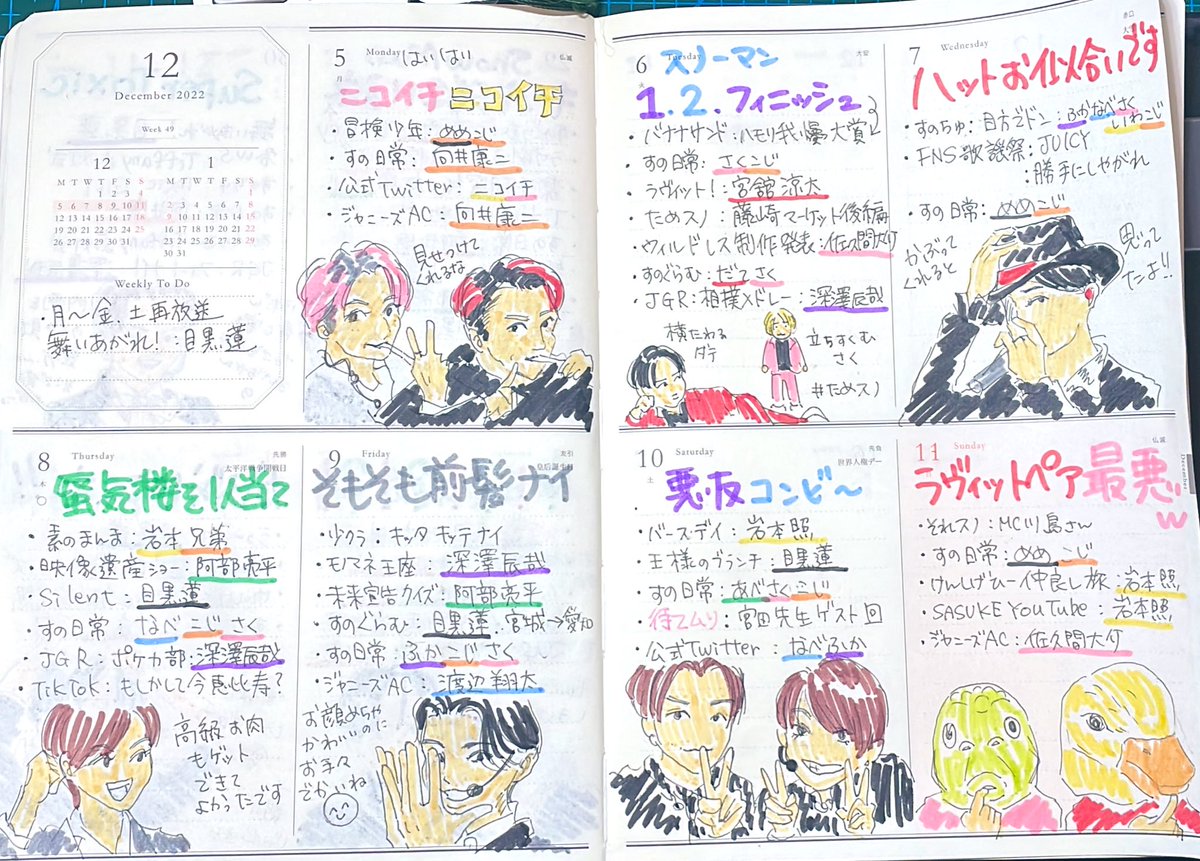 12
December 2022
Week 49
12
M T W T F S S
1 2 3 4
5 6 7 8 9 10 11
12 13 14 15 16 17 18
19 20 21 22 23 24 25
26 27 28 29 30 31
1
M T W T F S S
1
2 3 4 5 6 7 8
9 10 11 12 13 14 15
16 17 18 19 20 21 22
23 24 25 26 27 28 29
30 31
Weekly To Do
・月〜金、土再放送
舞いあがれ!:目黒蓮
5 Monday はいはい 仏滅
月
ニコイチ ニコイチ
・冒検少年:めめこじ
・すの日常:向井康二
・公式Twitter:ニコイチ
・ジャニーズAC:向井康二
見せつけて
くれるな
6 Tuesday 大安
火
スリーマン
1.2.フィニッシュ
・バナナサンド:ハモリ我慢大賞
・すの日常:さくこじ
・ラヴィット!:宮舘涼太
・ためスノ:藤崎マーケット後編
・ウィルドレス制作発表:佐久間大介
・すのぐらむ:だてさく
・JGR:相撲メドレー:深澤辰哉
横たわる
ダテ
立ちすくむ
さく
#ためスノ
7 Wednesday 赤口
ハットお似合いです
・すのちゅ:目方ごドン:ふかなべさく
いわこじ
・FNS歌謡祭:JUICY
:勝手にしやがれ
・すの日常:めめこじ
かぶって
くれると
思って
たよ!!
8 Thursday 先勝
木 太平洋戦争開戦日
蜃気楼を1人当て
・素のまんま:岩本兄弟
・映像遺産ショー:阿部亮平
・Silent:目黒蓮
・すの日常:なべこじさく
・JGR:ポケカ部:深澤辰哉
・TikTok:もしかして今恵比寿?
高級お肉
もゲット
できて
よかったです
9 Friday 友引
皇后誕生日
そもそも前髪ナイ
・少クラ:キッタキッテナイ
・モノマネ王座:深澤辰哉
・未来宣告クイズ:阿部亮平
・すのぐらむ:目黒蓮:宮城→愛知
・すの日常:ふかこじさく
・ジャニーズAC:渡辺翔太
お顔めちゃ
かわいのに
お手々
でかいね
10 Saturday 先負
土 世界人権デー
悪友コンビ〜
・バースデイ:岩本照
・王様のブランチ:目黒蓮
・すの日常:あべさくこじ
・待てムリ:宮田先生ゲスト回
・公式Twitter:なべふか
11 Sunday 仏滅
December
ラヴィットペア最悪w
・それスノ:MC川島さん
・すの日常:めめこじ
・けんしげひー仲良し旅:岩本照
・SASUKE YouTube:岩本照
・ジャニーズAC:佐久間大介